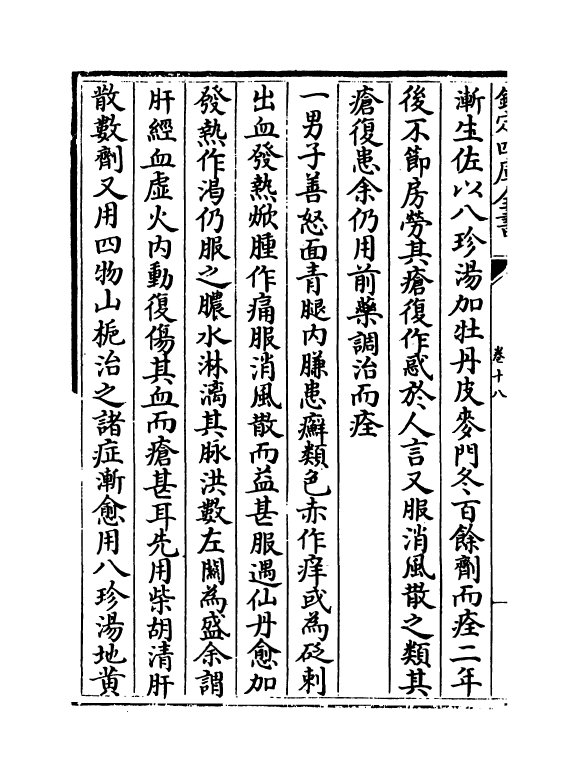 欽定四庫全書
卷十八
漸生佐以八珍湯加牡丹皮麥門冬百餘劑而痊二年
後不節房勞其瘡復作惑於人言又服消風散之類其
瘡復患余仍用前藥調治而痊
一男子善怒面青腿内臁患癬類色赤作痒或為砭刺
出血發熱焮腫作痛服消風散而益甚服遇仙丹愈加
發熱作渴仍服之膿水淋漓其脉洪數左關為盛余謂
肝經血虛火内動復傷其血而瘡甚耳先用柴胡清肝
散數劑又用四物山梔治之諸症漸愈用八珍湯地黄